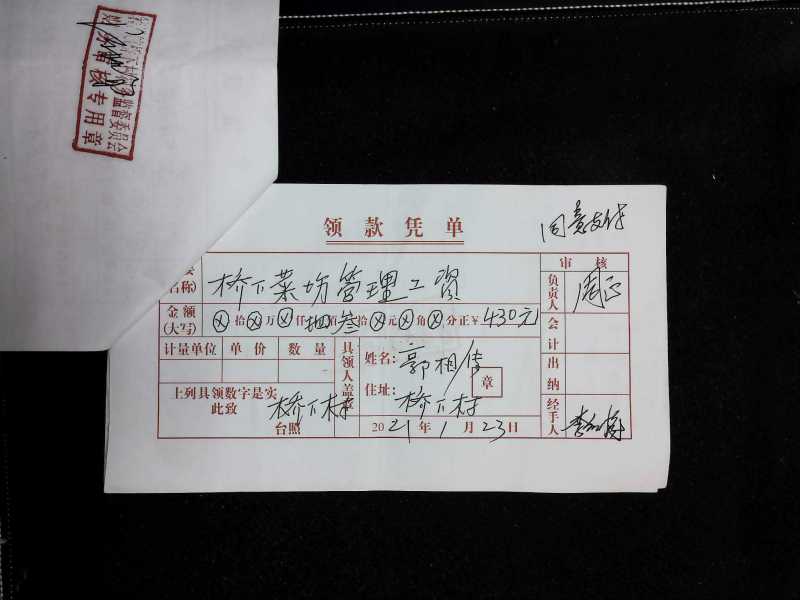 监督委员会
审核专用章
领款凭单
同意支付
名称)
桥下菜场管理工资
审核
负责人
金额
(大写)
ⓧ拾ⓧ万ⓧ仟肆佰叁拾ⓧ元ⓧ角ⓧ分正¥430元
会计
计量单位 单价 数量
具领人盖章
姓名:郭相传
章
出纳
上列具领数字是实
此致
桥下村
台照
住址:桥下村
2021年1月23日
经手人